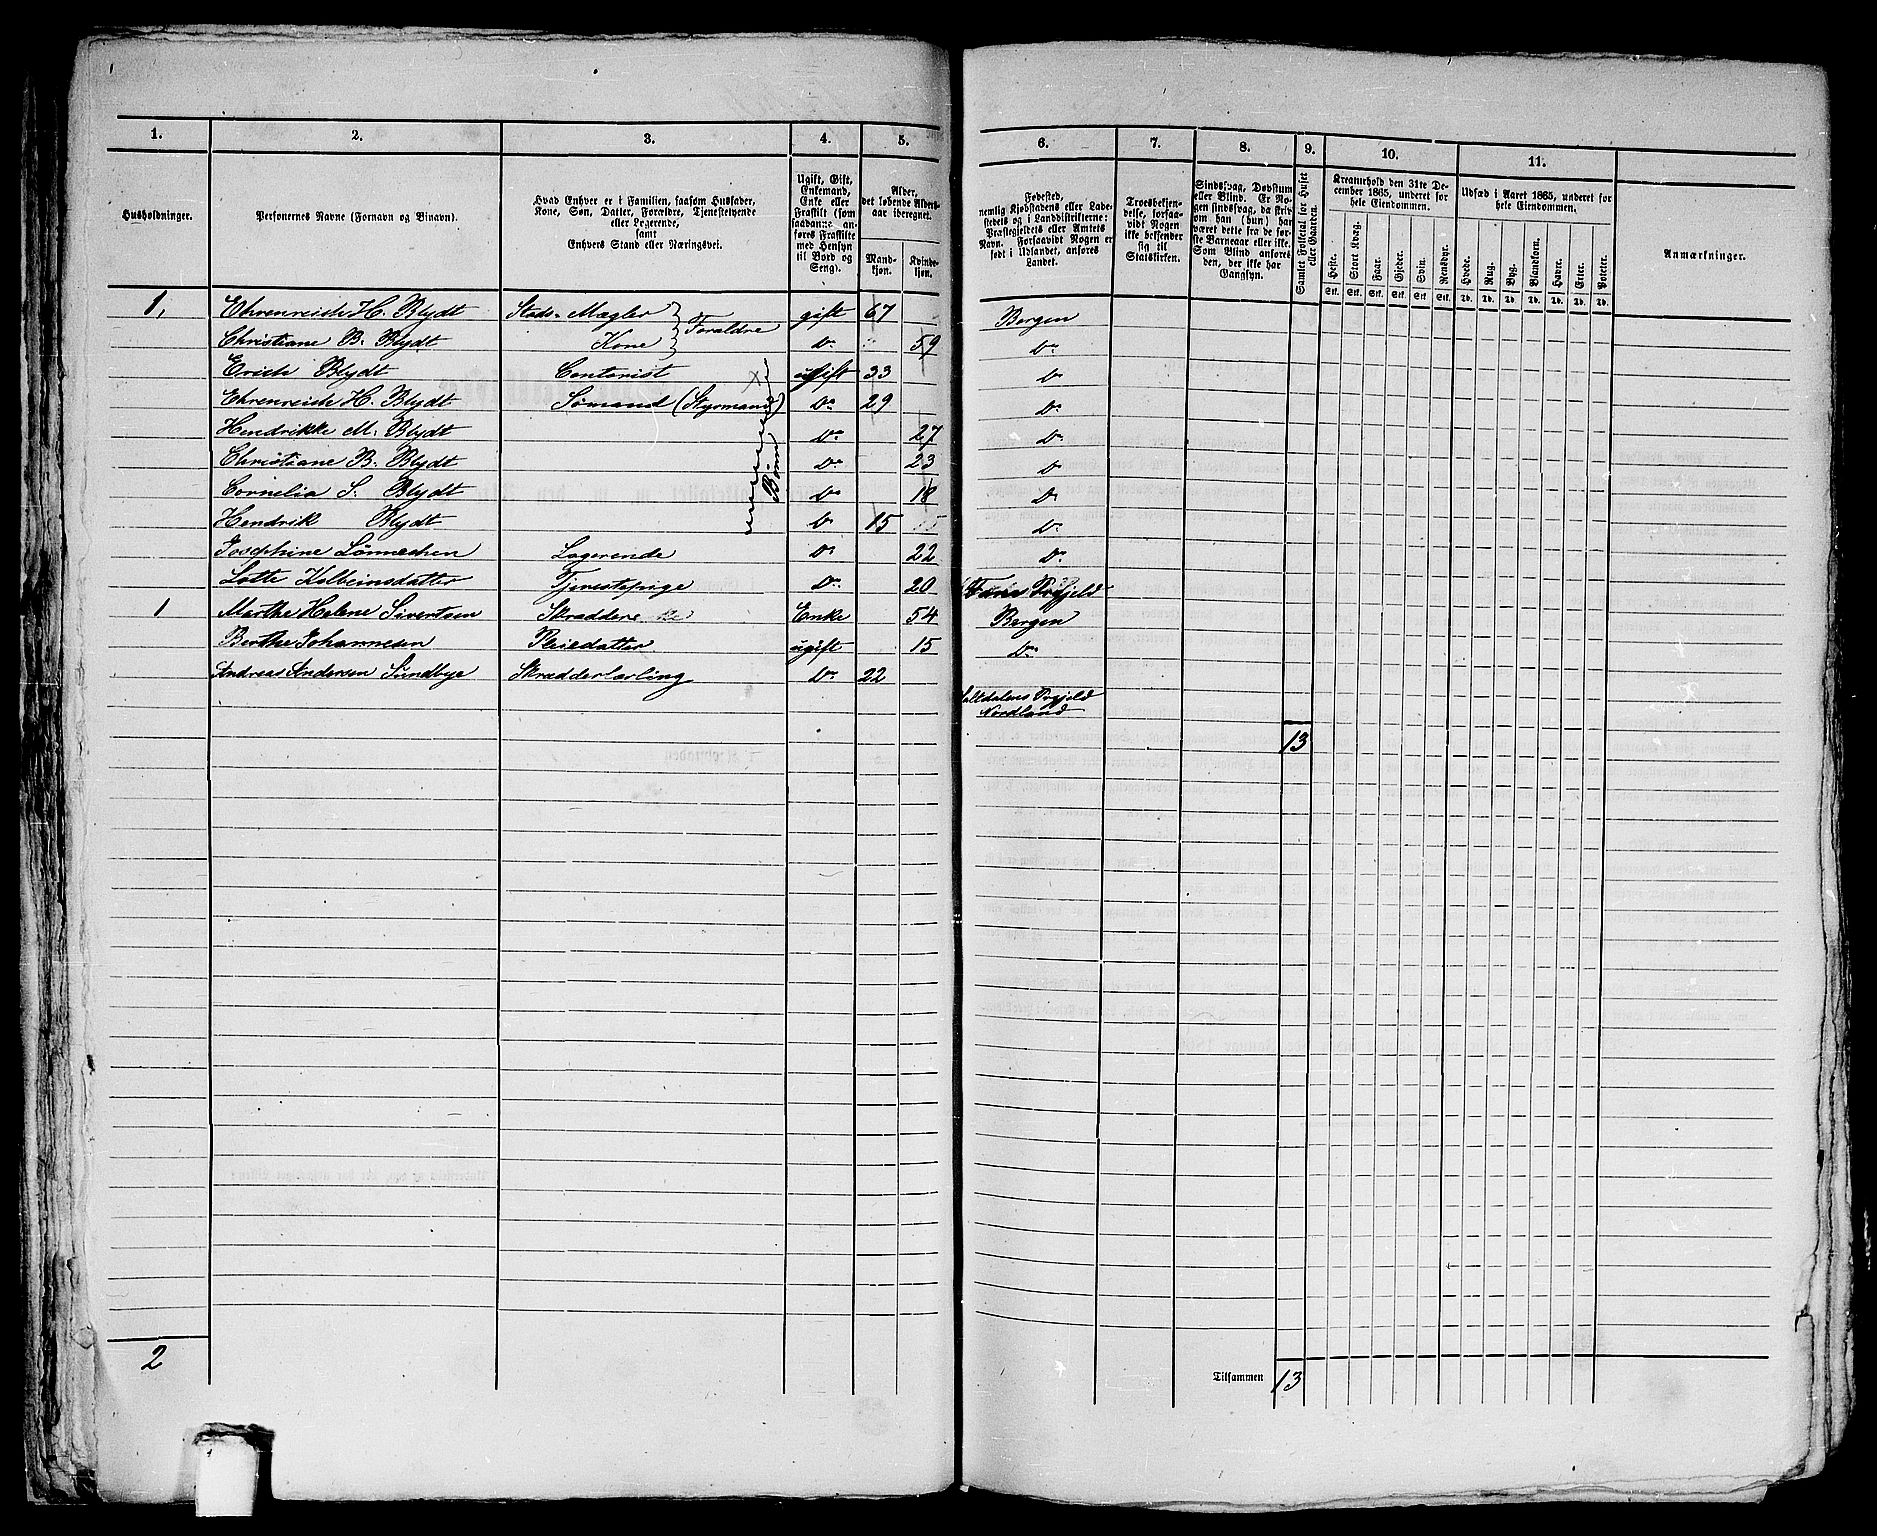 1. 2. 3. 4. 5. 6. 7. 8. 9. 10. 11.
Husholdninger.
Personernes Navne (Fornavn og Tilnavn).
Hvad Enhver er i Familien, saasom Husfader,
Kone, Søn, Datter, Forældre, Tjenestetyende
eller Logerende,
samt
Enhvers Stand eller Næringsvei.
Ugift, Gift,
Enkemand,
Enke eller
Fraskilt (som
saadanne anføres
Fraskilte
med Hensyn
til Bord og
Seng).
Alder,
det løbende Aldersaar
iberegnet.
Mandkjøn.
Kvindekjøn.
Fødested,
nemlig Kjøbstadens eller Ladestedets
og i Landdistrikterne:
Præstegjeldets eller Amtets
Navn. Forsaavidt Nogen er
født i Udlandet, anføres
Landet.
Troesbekjendelse,
forsaavidt
Nogen
ikke bekjender
sig til
Statskirken.
Sindssvag, Døvstum
eller Blind. Er Nogen
sindssvag, da skrives
om han (hun) har
været dette fra de første
Barneaar eller ikke.
Som Blind anføres
den, der ikke har
Gangsyn.
Samlet Folketal for Huset
eller Gaarden.
Kreaturhold den 31te December
1865, underet for
hele Eiendommen.
Heste. Stort Kvæg. Faar. Gjeder. Svin. Rensdyr.
Stk. Stk. Stk. Stk. Stk. Stk.
Udsæd i Aaret 1865, underet for
hele Eiendommen.
Hvede. Rug. Byg. Blandkorn. Havre. Erter. Poteter.
Td. Td. Td. Td. Td. Td. Td.
Anmærkninger.
1, Ehrenreich H. Blydt Stads-Mægler gift 67 Bergen
Forældre
Christiane B. Blydt Kone Do 59 Do
Erich Blydt Contorist ugift 33 Do
Ehrenreich H. Blydt Sømand (Styrmand) Do 29 Do
Hendrikke M. Blydt Do 27 Do
Christiane B. Blydt Do 23 Do
Cornelia S. Blydt Do 18 Do
Børn
Hendrik Blydt Do 15 Do
Josephine Lønnechen Logerende Do 22 Do
Lotte Kolbeinsdatter Tjenestepige Do 20 Præstgjeld
1 Marthe Helene Sivertsen Enke 54 Bergen
Berthe Johannesen Pleiedatter ugift 15 Do
Andreas Andersen Sundbye Skrædderlærling Do 22 Saltdalens Prgjeld
Nordland
13
2
Tilsammen 13